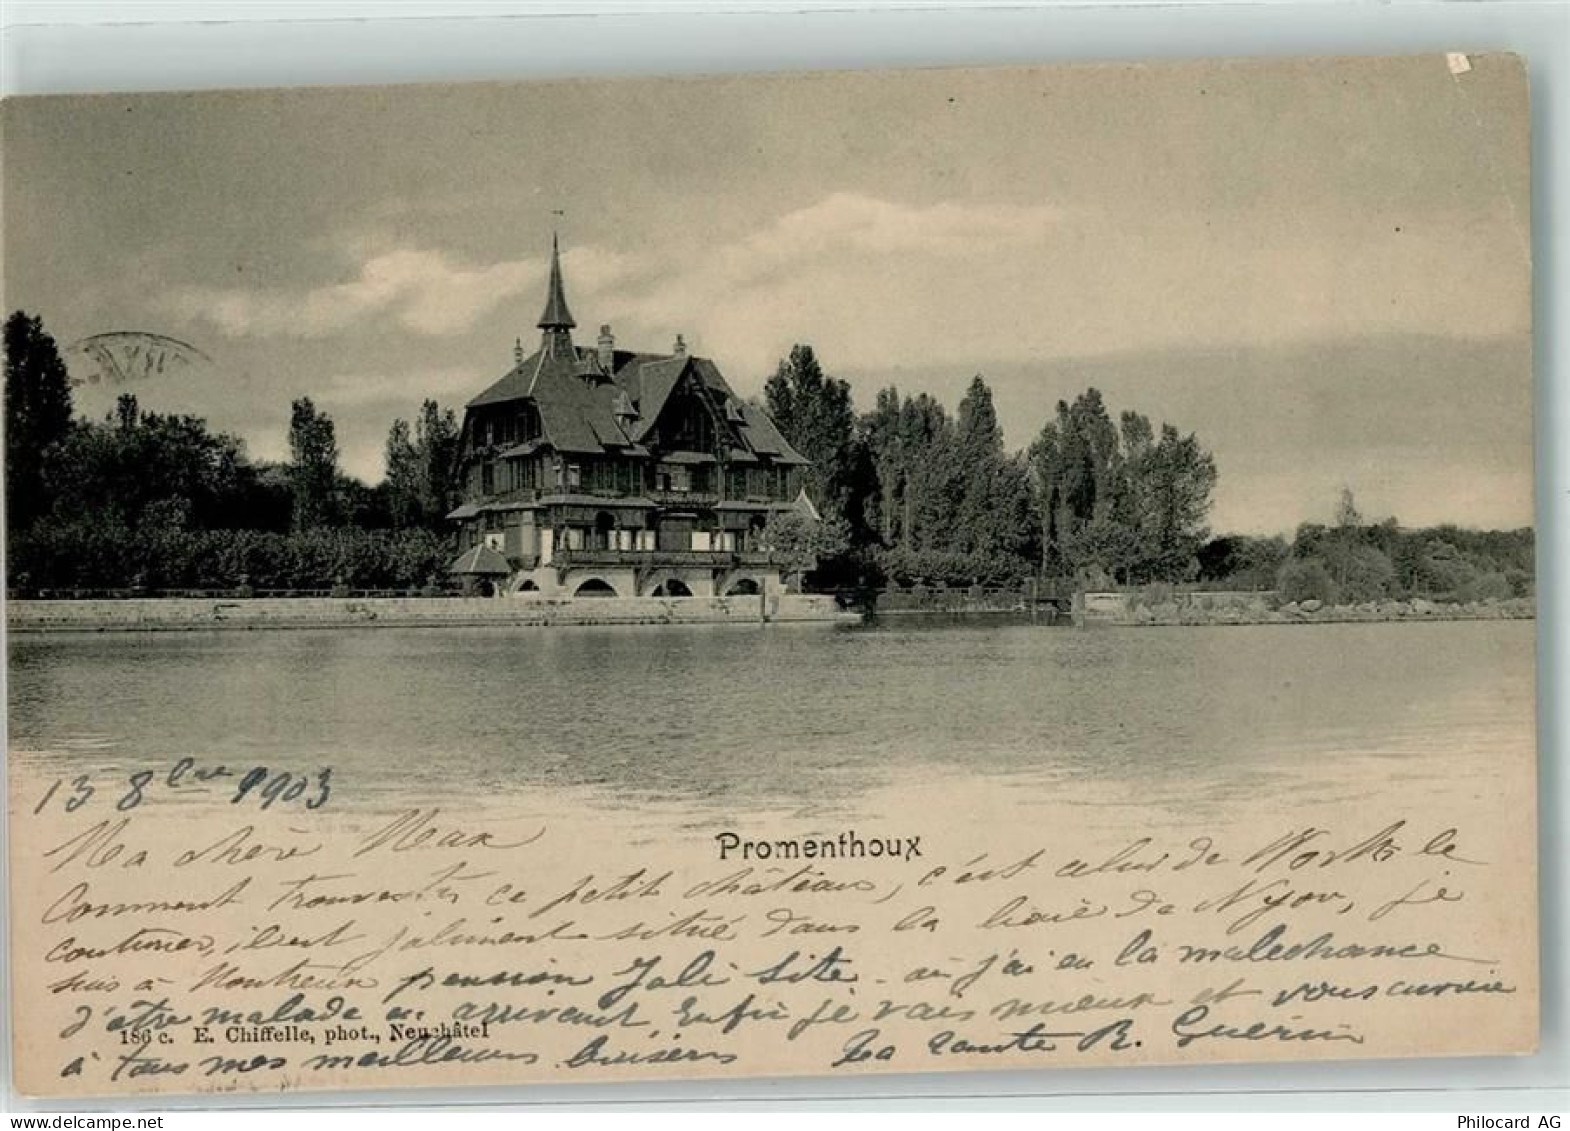 13 8bre 1903
Promenthoux
Ma chère Max
Comment trouvez ce petit château, c'est celui de Worth le
couturier, il est joliment situé dans la baie de Nyon, je
suis à Montreux pension Joli Site - où j'ai eu la malechance
d'être malade en arrivant. Enfin je vais mieux et vous envoie
186 c. E. Chiffelle, phot., Neuchâtel
à tous mes meilleurs baisers La tante R. Guérin
Philocard AG
www.delcampe.net